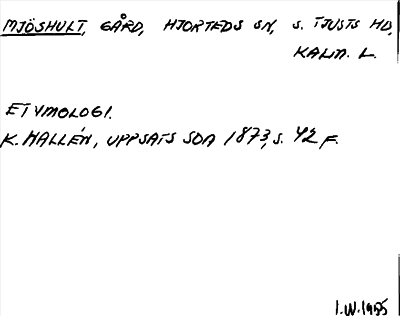 MJÖSHULT, GÅRD, HJORTEDS SN, S. TJUSTS HD,
KALM. L.
ETYMOLOGI.
K. HALLÉN, UPPSATS SOA 1873, S. 42 F.
I.W. 1985